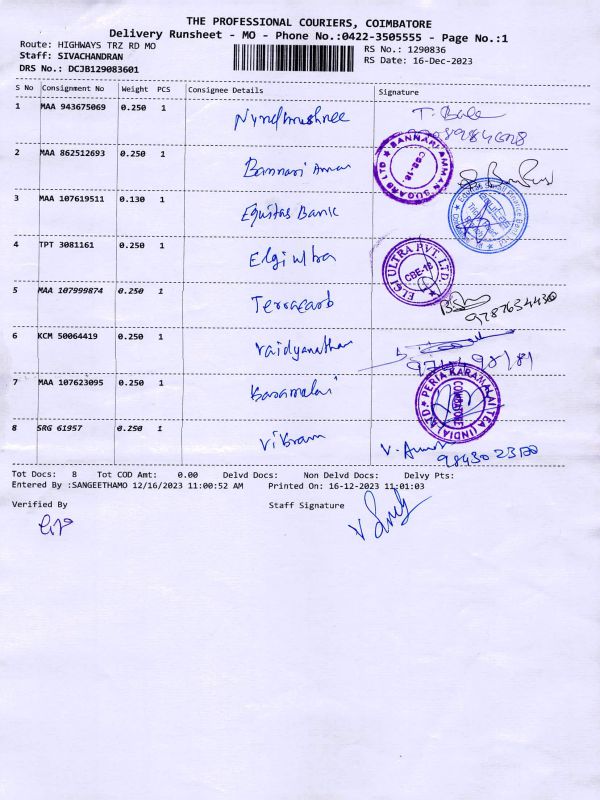 THE PROFESSIONAL COURIERS, COIMBATORE
Delivery Runsheet - MO - Phone No.:0422-3505555 - Page No.:1
Route: HIGHWAYS TRZ RD MO
Staff: SIVACHANDRAN
DRS No.: DCJB129083601
RS No.: 1290836
RS Date: 16-Dec-2023
S No Consignment No Weight PCS Consignee Details Signature
1 MAA 943675069 0.250 1
2 MAA 862512693 0.250 1 Bannari Amman
BANNARI AMMAN SUGARS LTD
CBE-18
3 MAA 107619511 0.130 1 Equitas Bank
4 TPT 3081161 0.250 1 Elgi ultra
ELGI ULTRA PVT. LTD.
CBE-18
5 MAA 107999874 0.250 1 Terracarb
9787634430
6 KCM 50064419 0.250 1 Vaidyanathan
7 MAA 107623095 0.250 1 Karamalai
PERIA KARAMALAI TEA (INDIA) LTD.
COIMBATORE
8 SRG 61957 0.250 1 Vikram
Tot Docs: 8 Tot COD Amt: 0.00 Delvd Docs: Non Delvd Docs: Delvy Pts:
Entered By :SANGEETHAMO 12/16/2023 11:00:52 AM Printed On: 16-12-2023 11:01:03
Verified By Staff Signature